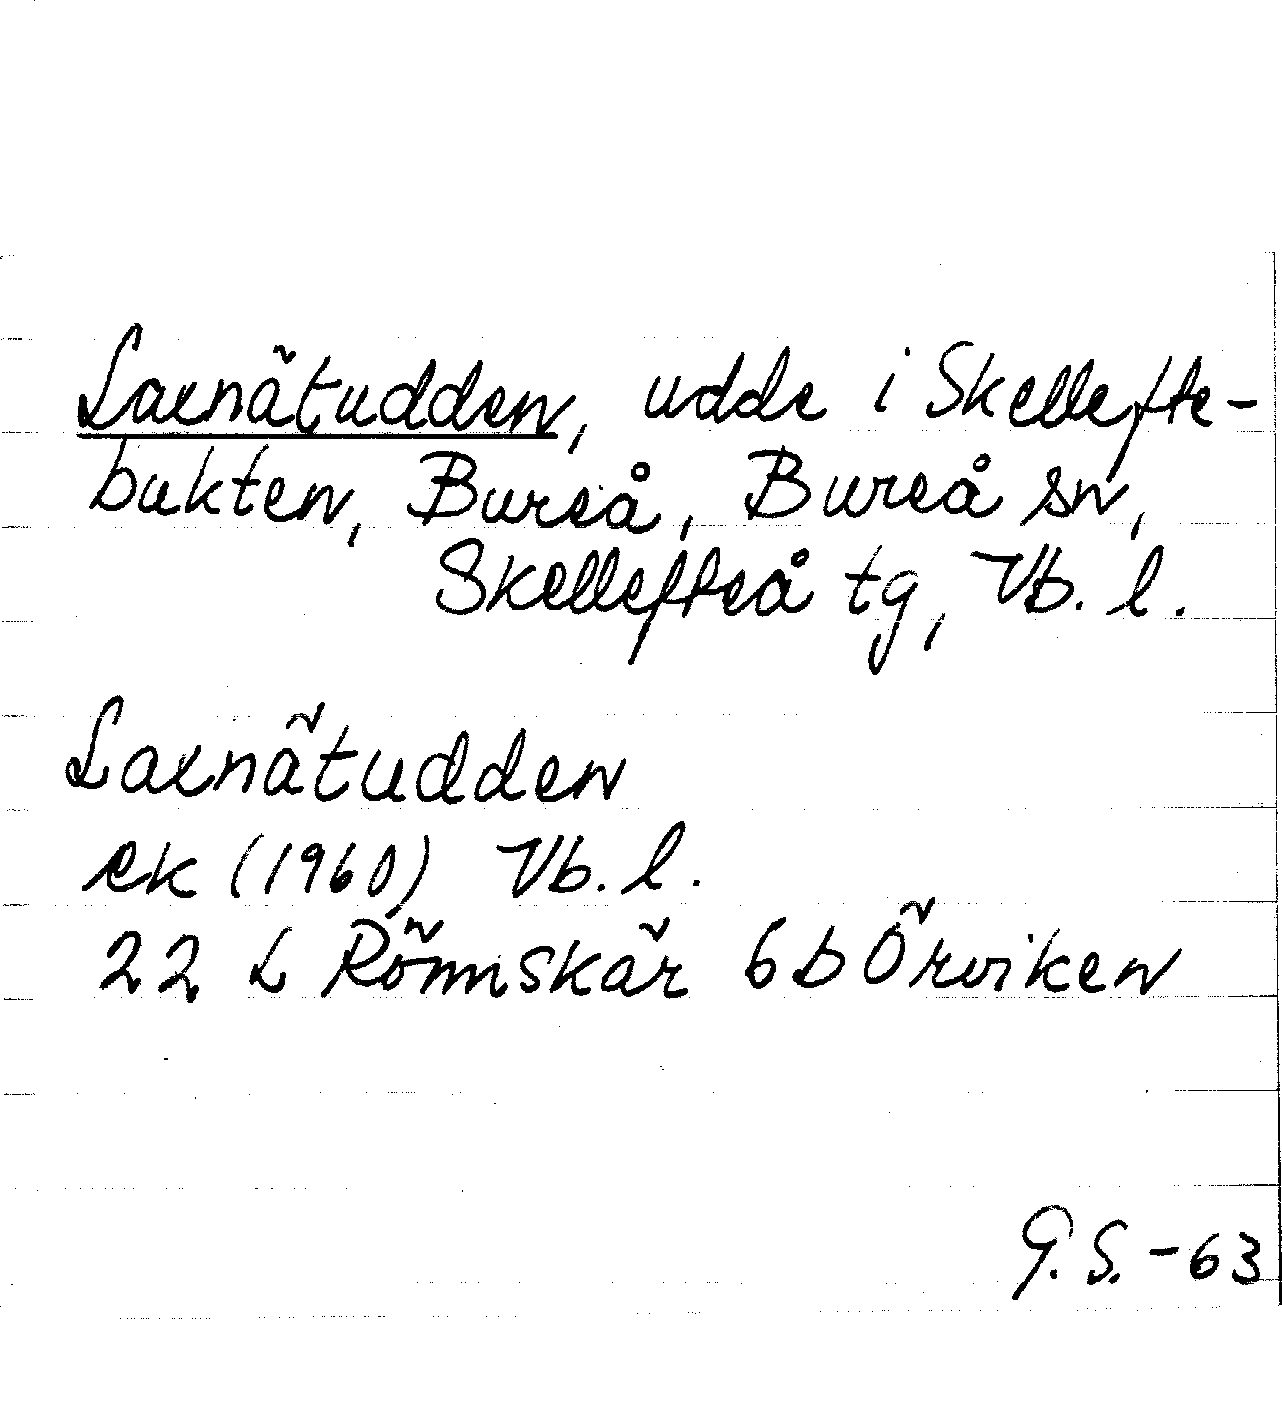 Laxnätudden, udde i Skellefte-
bukten, Bureå, Bureå sn,
Skellefteå tg, Vb. l.
Laxnätudden
ek (1960) Vb. l.
22 L Rönnskär 6b Örviken
G. S. - 63